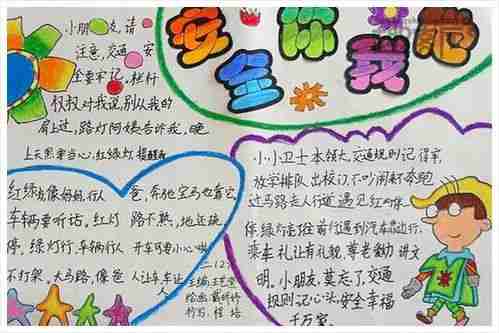 安全你我他
小朋友,请
注意,交通安
全要牢记。栏杆
叔叔对我说,别从我的
肩上过,路灯阿姨告诉我,晚
上天黑要当心,红绿灯提醒我
红绿灯像妈妈,行人
车辆要听话。红灯
停。绿灯行,车辆行人
不打架。大马路,像爸
爸,奔驰宝马也看它
路不熟,地还换
开车可要小心
人让车,车让人
二(2)
主编:王
绘画:戴
抄写:程培
小小卫士本领大,交通规则记得牢,
放学排队出校门,不吵闹来不奔跑
过马路走人行道,遇见红灯停
绿灯走,往前行遇到汽车靠边行,
乘车礼让有礼貌,尊老爱幼讲文
明。小朋友,莫忘了,交通
规则记心头,安全幸福
千万家。